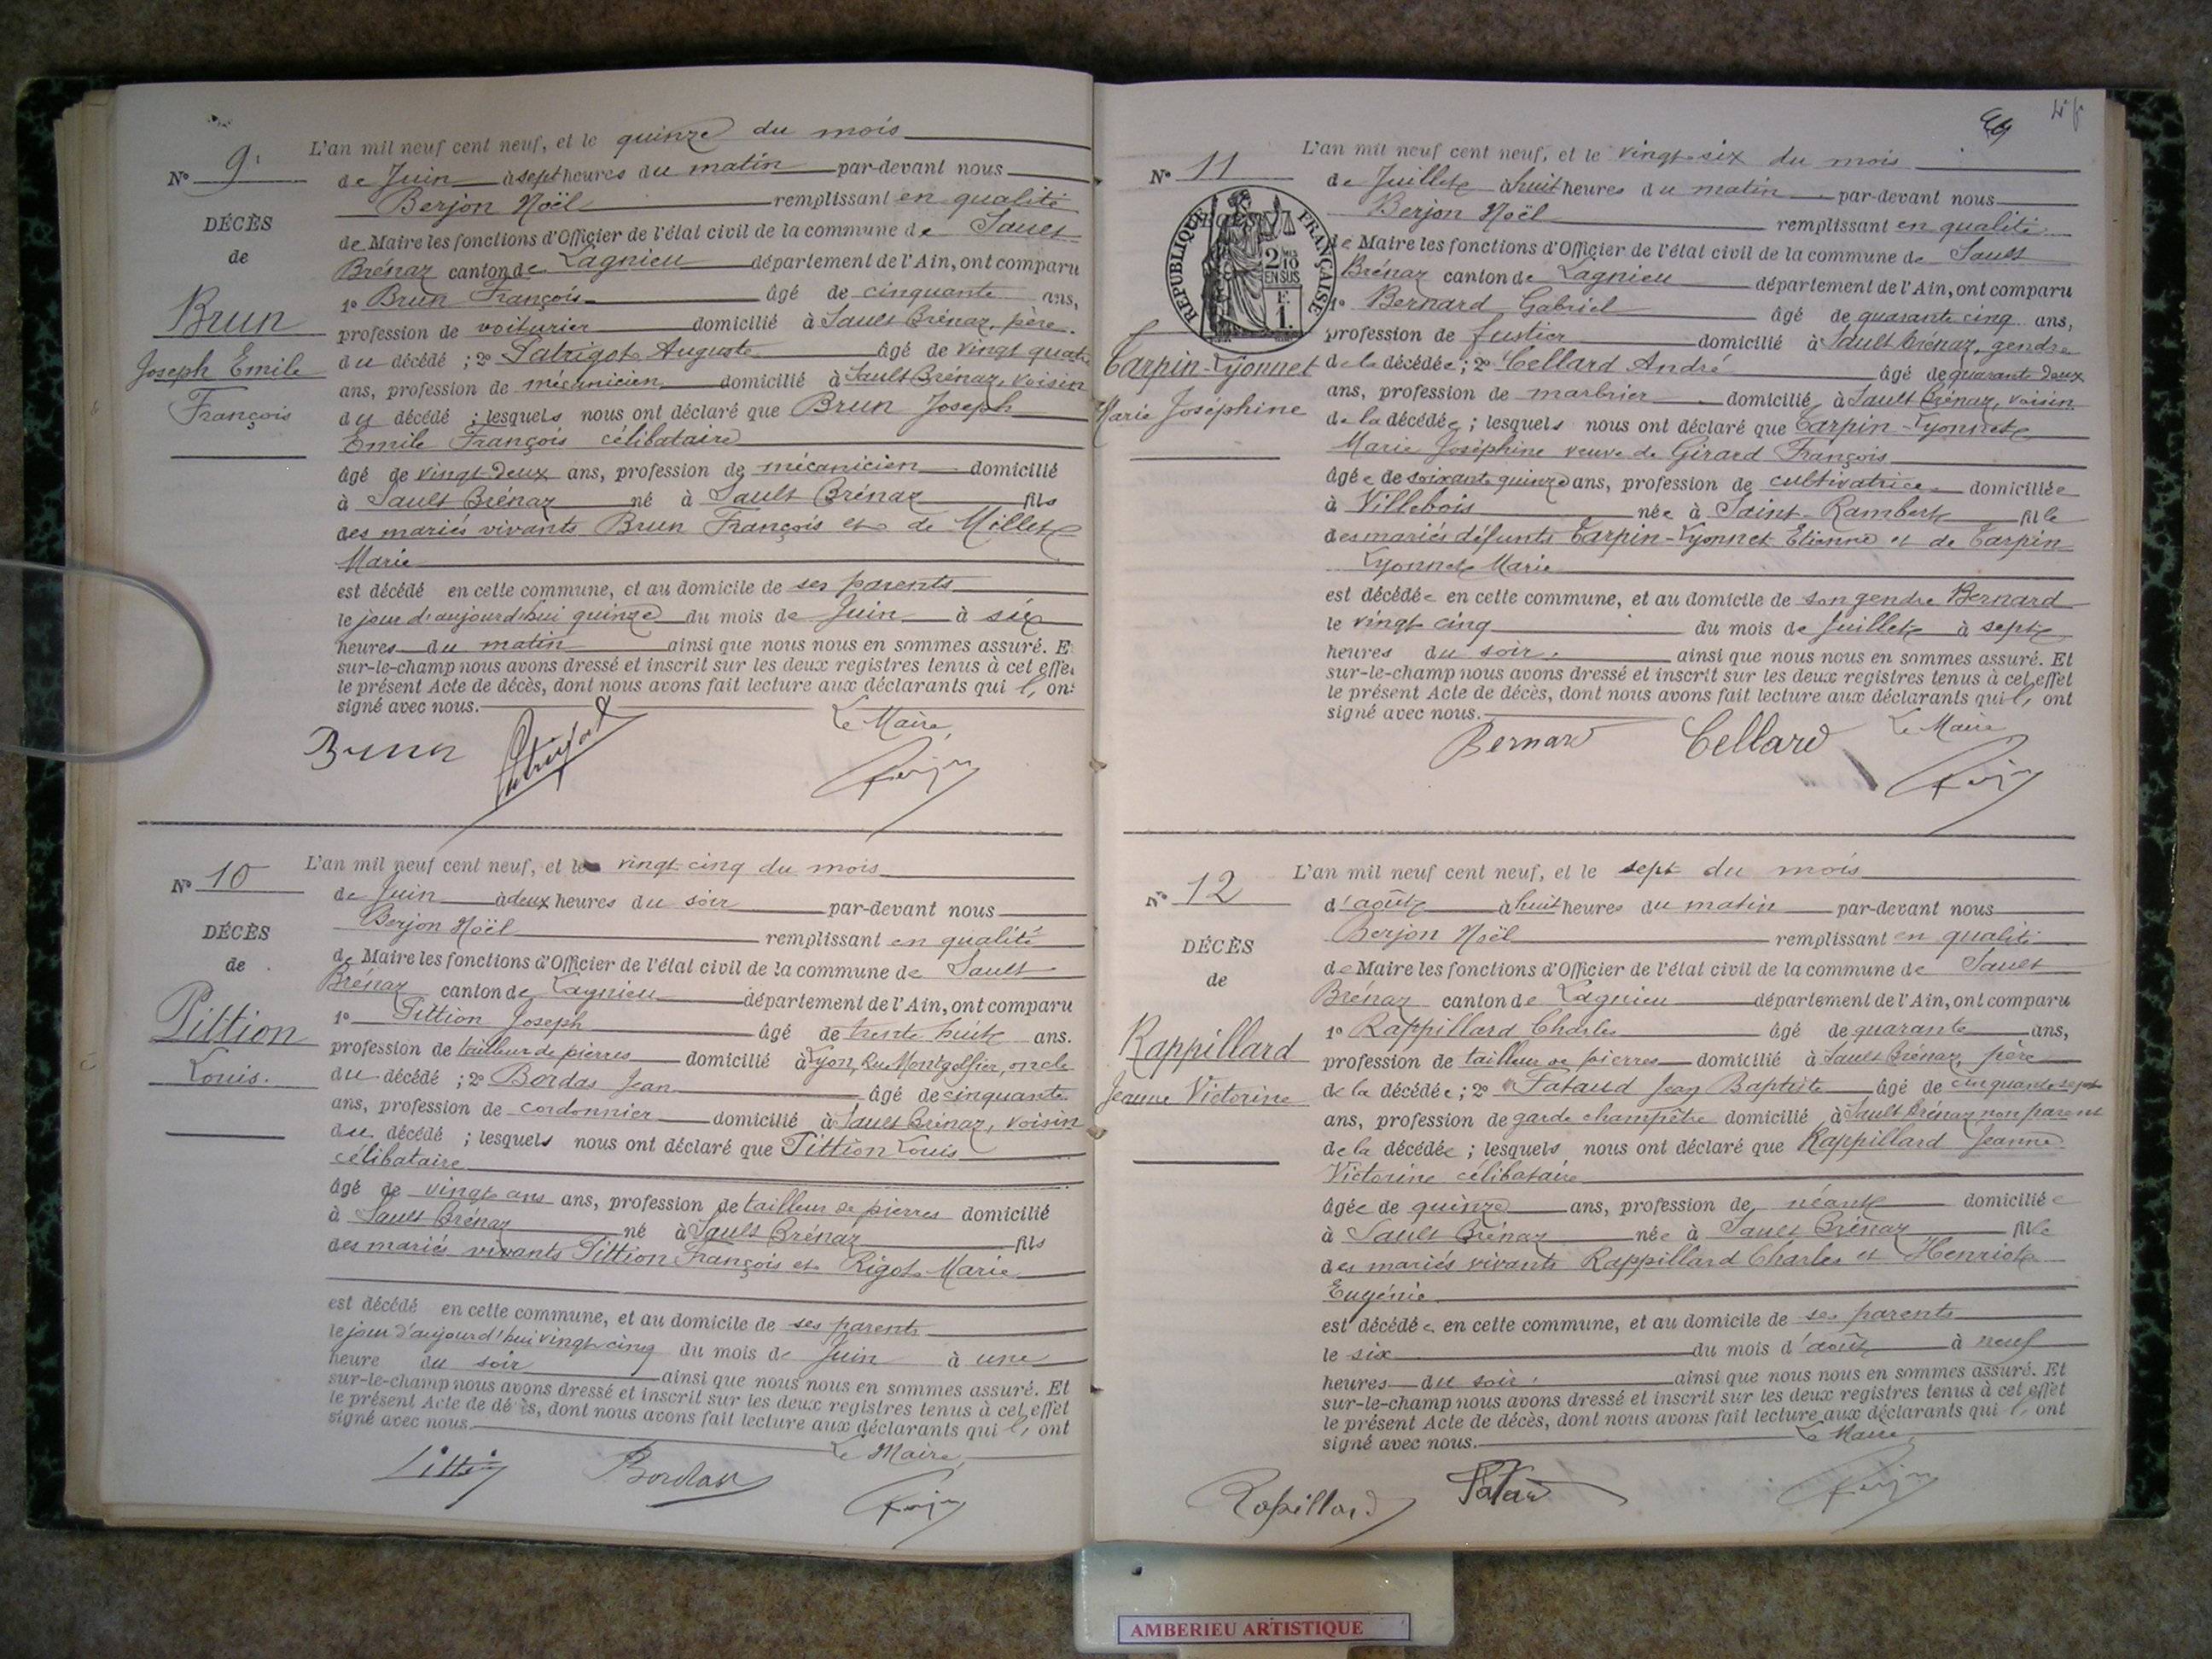 L'an mil neuf cent neuf, et le quinze du mois
N° 9
de Juin à sept heures du matin par-devant nous
Berjon Noël remplissant en qualité
DÉCÈS
de Maire les fonctions d'Officier de l'état civil de la commune de Sault
de
Brénaz canton de Lagnieu département de l'Ain, ont comparu
1° Brun François âgé de cinquante ans,
Brun
profession de voiturier domicilié à Sault Brénaz, père
Joseph Emile
du décédé ; 2° Patrigot Auguste âgé de vingt quatre
ans, profession de mécanicien domicilié à Sault Brénaz, voisin
François
du décédé ; lesquels nous ont déclaré que Brun Joseph
Emile François célibataire
âgé de vingt-deux ans, profession de mécanicien domicilié
à Sault Brénaz né à Sault Brénaz fils
des mariés vivants Brun François et de Millet
Marie
est décédé en cette commune, et au domicile de ses parents
le jour d'aujourd'hui quinze du mois de Juin à six
heures du matin ainsi que nous nous en sommes assuré. E
sur-le-champ nous avons dressé et inscrit sur les deux registres tenus à cet effet
le présent Acte de décès, dont nous avons fait lecture aux déclarants qui l'ont
signé avec nous.
Le Maire,
Brun
L'an mil neuf cent neuf, et le vingt-cinq du mois
N° 10
de Juin à deux heures du soir par-devant nous
Berjon Noël remplissant en qualité
DÉCÈS
de Maire les fonctions d'Officier de l'état civil de la commune de Sault
de
Brénaz canton de Lagnieu département de l'Ain, ont comparu
1° Pittion Joseph âgé de trente huit ans.
Pittion
profession de tailleur de pierres domicilié à Lyon, Rue Montgolfier, oncle
Louis.
du décédé ; 2° Bordas Jean âgé de cinquante
ans, profession de cordonnier domicilié à Sault Brénaz, voisin
du décédé ; lesquels nous ont déclaré que Pittion Louis
célibataire
âgé de vingt ans ans, profession de tailleur de pierres domicilié
à Sault Brénaz né à Sault Brénaz fils
des mariés vivants Pittion François et Rigot Marie
est décédé en cette commune, et au domicile de ses parents
le jour d'aujourd'hui vingt-cinq du mois de Juin à une
heure du soir ainsi que nous nous en sommes assuré. Et
sur-le-champ nous avons dressé et inscrit sur les deux registres tenus à cet effet
le présent Acte de décès, dont nous avons fait lecture aux déclarants qui l'ont
signé avec nous.
Le Maire,
Pittion Bordas
L'an mil neuf cent neuf, et le vingt-six du mois
N° 11
de Juillet à huit heures du matin par-devant nous
Berjon Noël remplissant en qualité
RÉPUBLIQUE FRANÇAISE
2 MES 10 EN SUS
F. 1.
de Maire les fonctions d'Officier de l'état civil de la commune de Sault
Brénaz canton de Lagnieu département de l'Ain, ont comparu
1° Bernard Gabriel âgé de quarante cinq ans,
profession de fustier domicilié à Sault Brénaz, gendre
Carpin-Lyonnet
de la décédée ; 2° Cellard André âgé de quarante deux
ans, profession de marbrier domicilié à Sault Brénaz, voisin
Marie Joséphine
de la décédée ; lesquels nous ont déclaré que Carpin-Lyonnet
Marie Joséphine veuve de Girard François
âgée de soixante quinze ans, profession de cultivatrice domiciliée
à Villebois née à Saint-Rambert fille
des mariés défunts Carpin-Lyonnet Etienne et de Carpin
Lyonnet Marie
est décédée en cette commune, et au domicile de son gendre Bernard
le vingt cinq du mois de Juillet à sept
heures du soir ainsi que nous nous en sommes assuré. Et
sur-le-champ nous avons dressé et inscrit sur les deux registres tenus à cet effet
le présent Acte de décès, dont nous avons fait lecture aux déclarants qui l'ont
signé avec nous.
Le Maire
Bernard Cellard
L'an mil neuf cent neuf, et le sept du mois
N° 12
d'août à huit heures du matin par-devant nous
Berjon Noël remplissant en qualité
DÉCÈS
de Maire les fonctions d'Officier de l'état civil de la commune de Sault
de
Brénaz canton de Lagnieu département de l'Ain, ont comparu
1° Rappillard Charles âgé de quarante ans,
Rappillard
profession de tailleur de pierres domicilié à Sault Brénaz, père
Jeanne Victorine
de la décédée ; 2° Fataud Jean Baptiste âgé de cinquante sept
ans, profession de garde champêtre domicilié à Sault Brénaz non parent
de la décédée ; lesquels nous ont déclaré que Rappillard Jeanne
Victorine célibataire
âgée de quinze ans, profession de néant domiciliée
à Sault Brénaz née à Sault Brénaz fille
des mariés vivants Rappillard Charles et Henriot
Eugénie
est décédée en cette commune, et au domicile de ses parents
le six du mois d'août à neuf
heures du soir ainsi que nous nous en sommes assuré. Et
sur-le-champ nous avons dressé et inscrit sur les deux registres tenus à cet effet
le présent Acte de décès, dont nous avons fait lecture aux déclarants qui l'ont
signé avec nous.
Le Maire,
Rapillard
AMBERIEU ARTISTIQUE